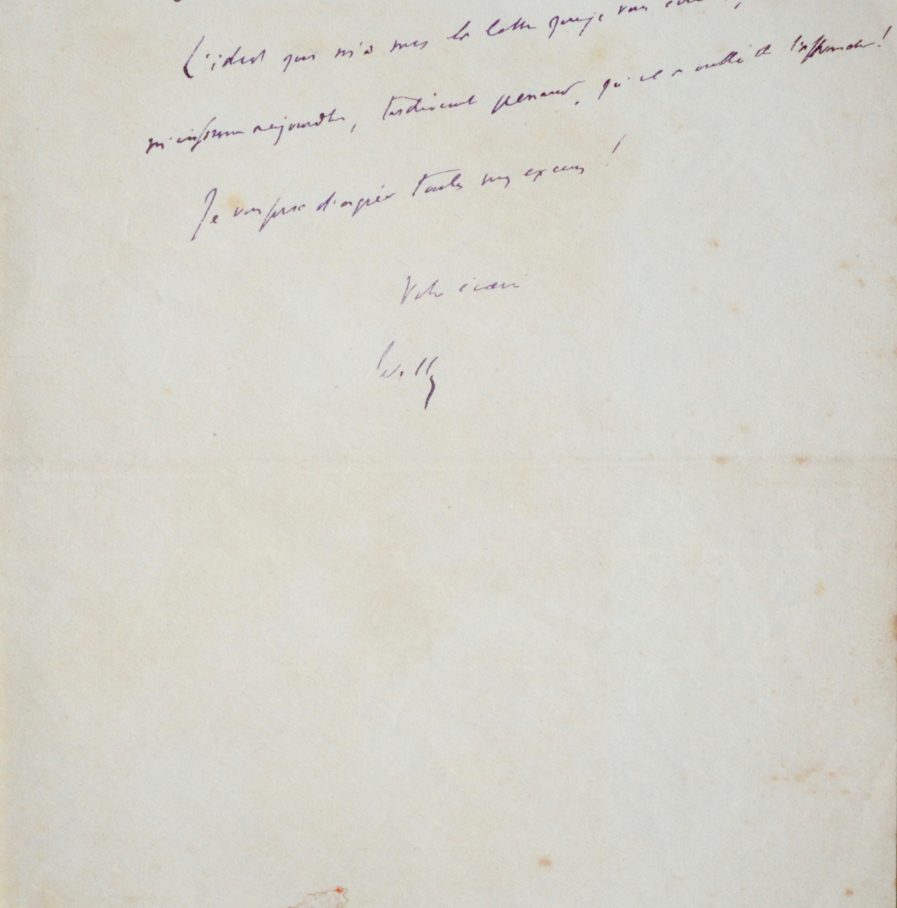 L'idiot qui m'a mis la lettre que je vous
m'informe aujourd'hui, tardivement penaud, qu'il a oublié de l'affranchir!
Je vous prie d'agréer toutes mes excuses!
Votre
Willy